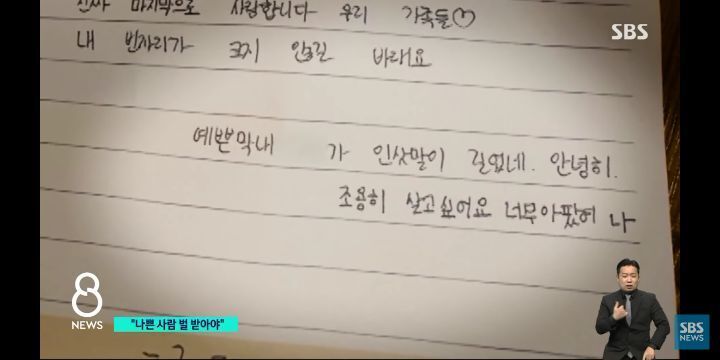 진짜 마지막으로 사랑합니다 우리 가족들♡
SBS
내 빈자리가 크지 않길 바래요
예쁜막내 가 인삿말이 길었네. 안녕히.
조용히 살고싶어요 너무아팠어 나
8
NEWS
"나쁜 사람 벌 받아야"
SBS
NEWS